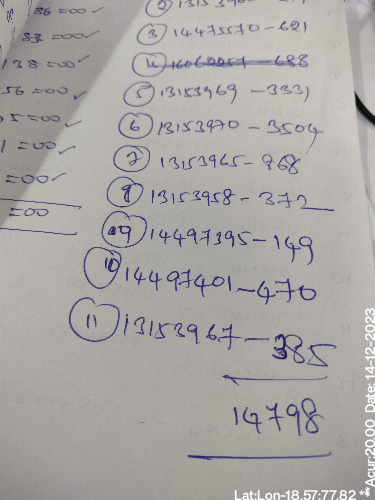 86=00✓
② 13153960
83=00✓
③ 14475570-621
138=00✓
④ 16062257-688
56=00✓
⑤ 13153969-3331
5=00✓
⑥ 13153970-3504
1=00✓
⑦ 13153965-868
=00✓
⑧ 13153958-372
=00
⑨ 14497395-149
⑩ 14497401-470
⑪ 13153967-385
14798
Lat:Lon-18.57:77.82 ** Acur:20.00 Date:14-12-2023